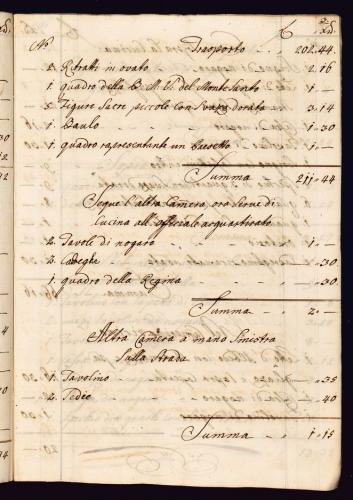 N°. Trasporto .. " 202.44.
2. Ritratti in ovato 2.16
1. quadro della B. M. Vg. del Monte Santo " 1. —
5. Figure Sacre piccole con dorata " 3.14
1. Baulo " 1. 30
1. quadro rapresentante un " 1. —
Summa " 211. 44
Segue l'altra Camera, ora serve di
Cucina all'officiale acquartirato
2. Tavole di nogaro " 1. —
2. " — . 30
1. quadro della Regina " — . 30
Summa " 2. —
Altra Camera a mano Sinistra
Sulla Strada
1. Tavolino " — . 35
2. " — . 40
Summa " 1. 15